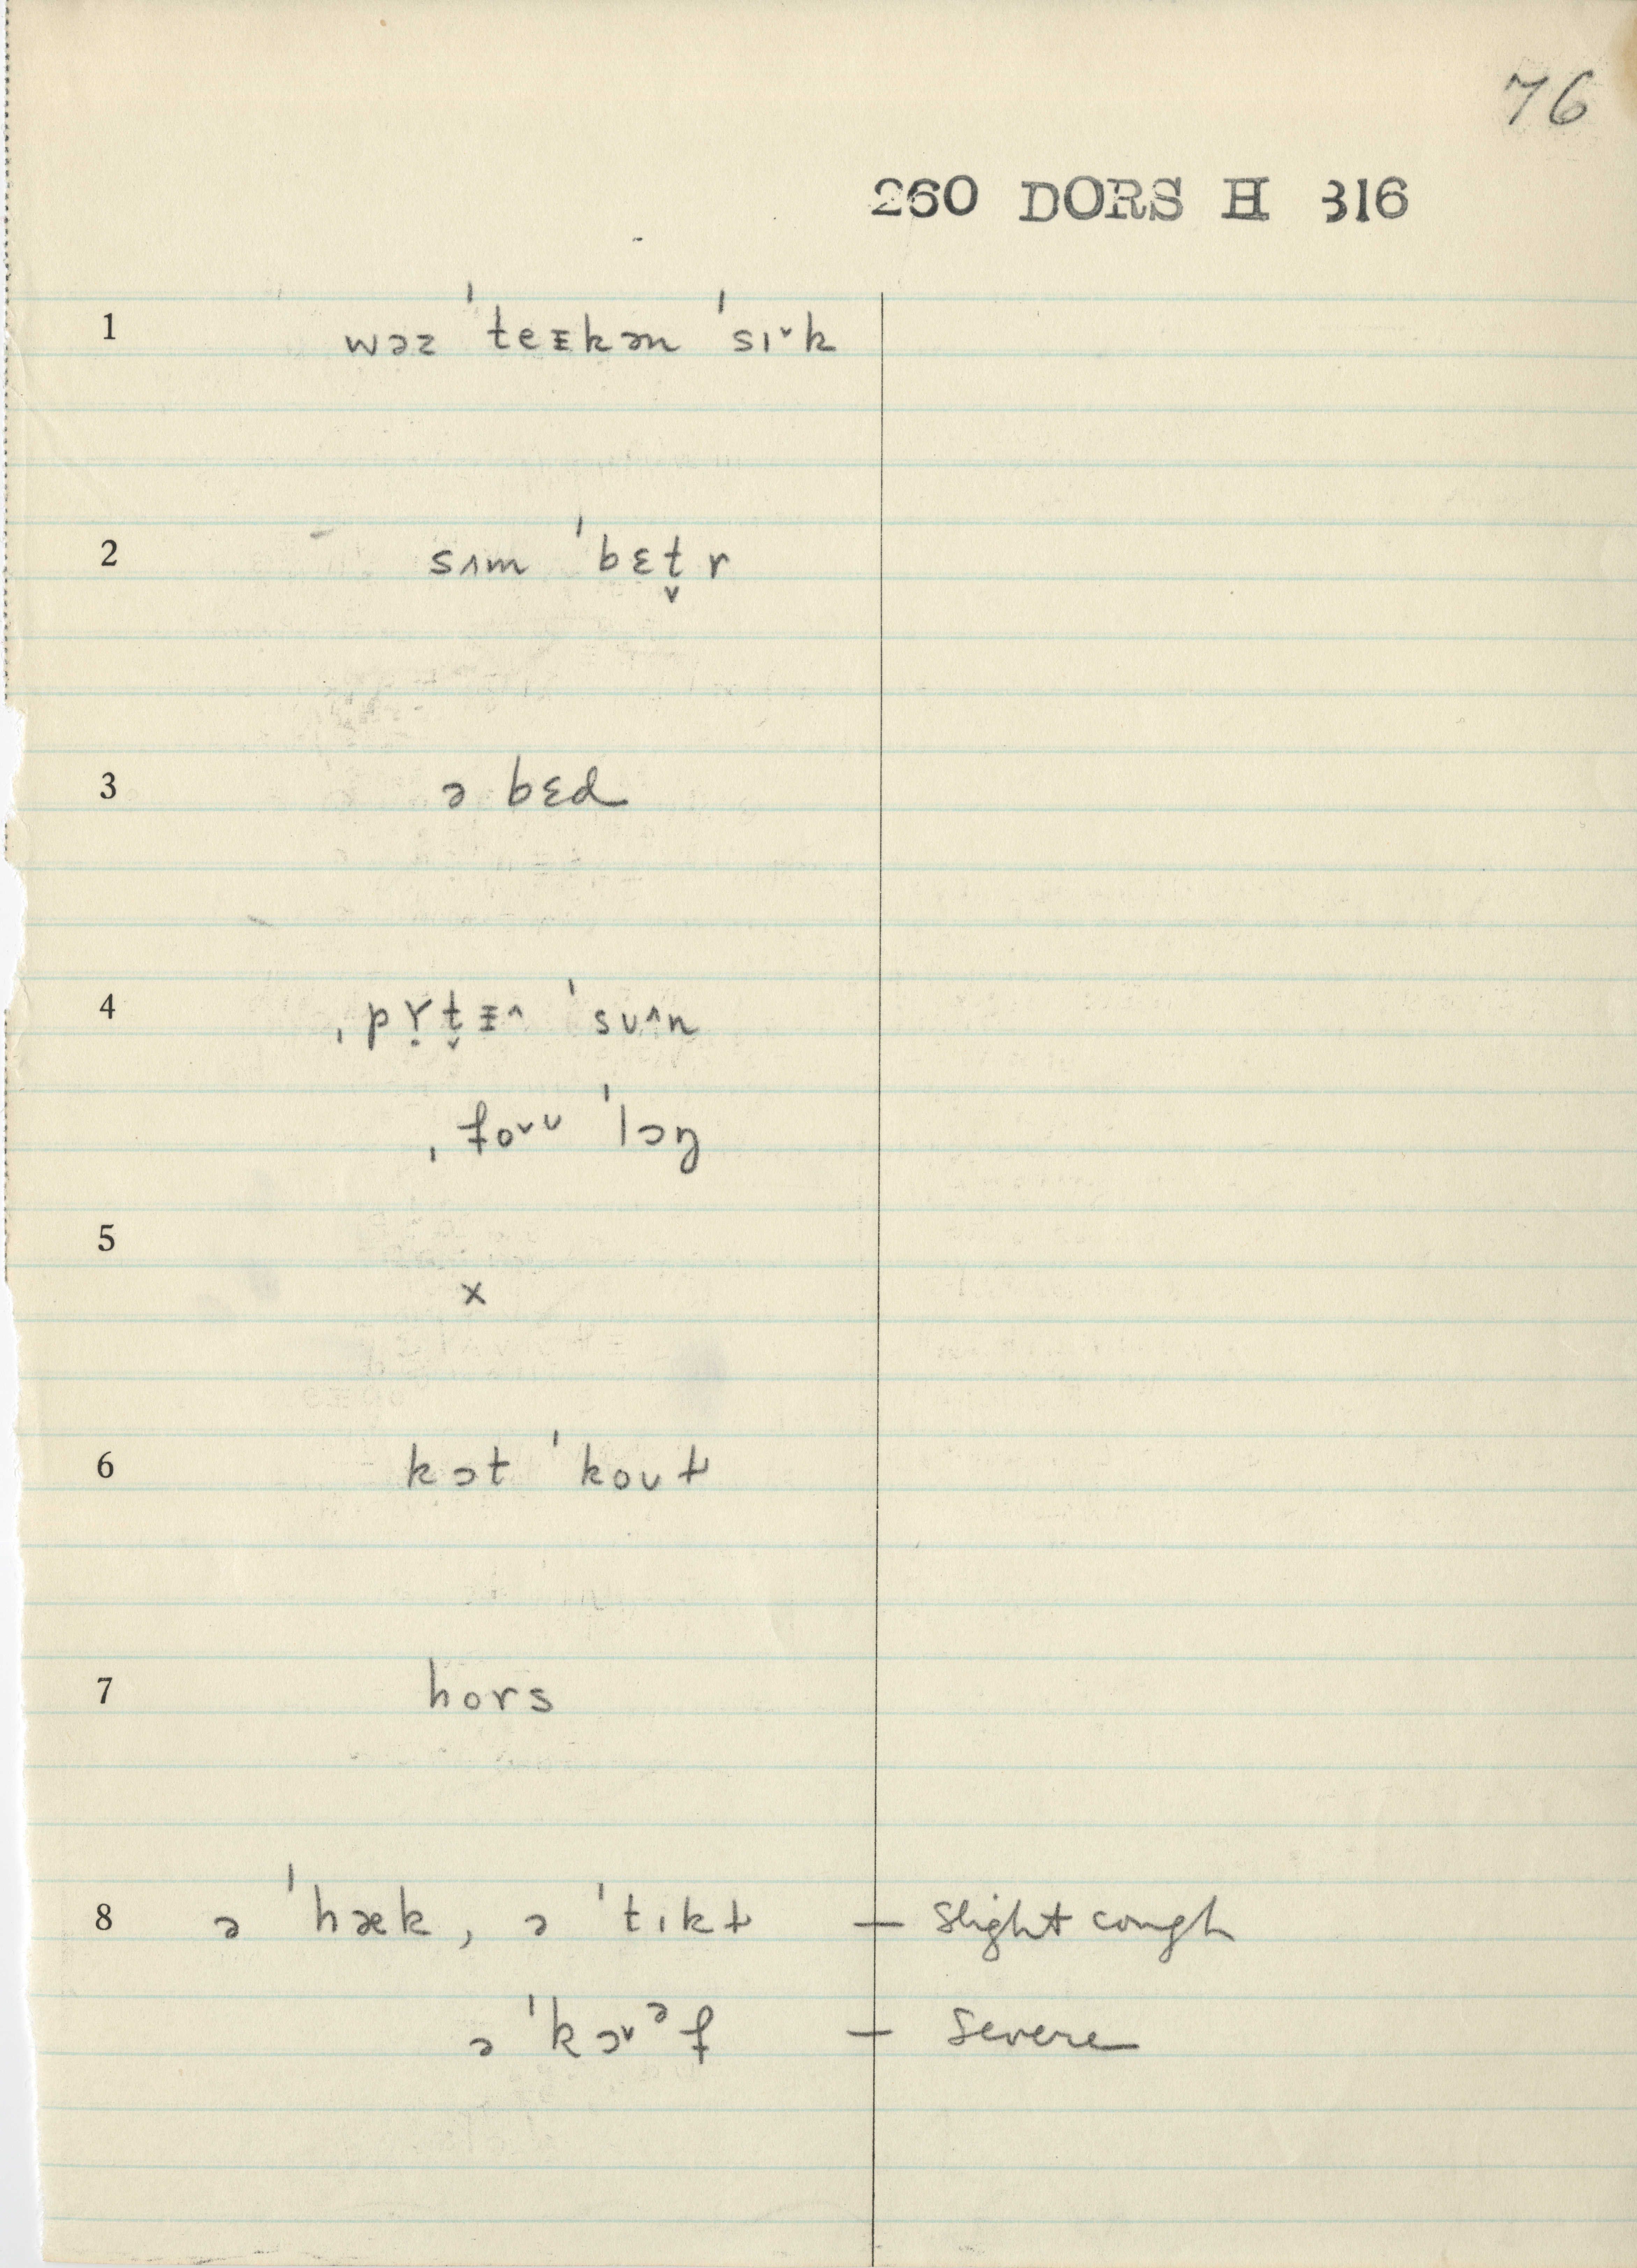 76
260 DORS H 316
1 wəz ˈteᵻkən ˈsɪ˅k
2 sʌm ˈbɛt̬r
3 ə bɛd
4 ˌpɤ̣t̬ᵻ^ ˈsʊ^n
ˌfo˅ʊ ˈlɔŋ
5
x
6 kɔt ˈkoʊɫ
7 hors
8 ə ˈhæk, ə ˈtɪkɫ – slight cough
ə ˈkɔ˅ᵊf – severe